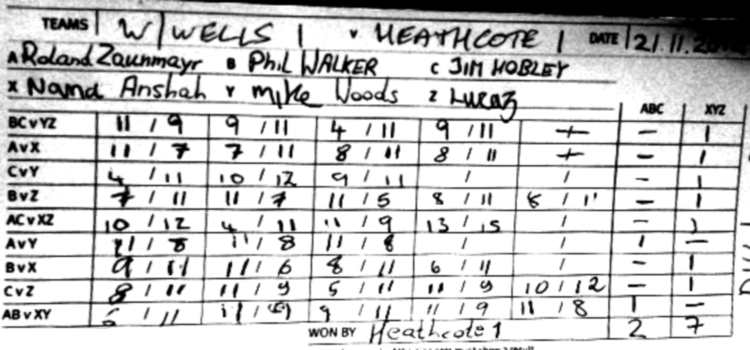 TEAMS W/WELLS 1 v HEATHCOTE 1 DATE 21.11.
A Roland Zaunmayr B Phil WALKER C JIM HOBLEY
X Nana Anshah Y Mike Woods Z Lucaz
ABC XYZ
BC v YZ 11 / 9 9 / 11 4 / 11 9 / 11 / – 1
A v X 11 / 7 7 / 11 8 / 11 8 / 11 / – 1
C v Y 4 / 11 10 / 12 9 / 11 / / – 1
B v Z 7 / 11 11 / 7 11 / 5 8 / 11 8 / 11 – 1
AC v XZ 10 / 12 4 / 11 11 / 9 13 / 15 / – 1
A v Y 11 / 8 11 / 8 11 / 8 / / 1 –
B v X 9 / 11 11 / 6 8 / 11 6 / 11 / – 1
C v Z 8 / 11 11 / 9 5 / 11 11 / 9 10 / 12 – 1
AB v XY / 11 11 / 9 9 / 11 11 / 9 11 / 8 1 –
WON BY Heathcote 1 2 7